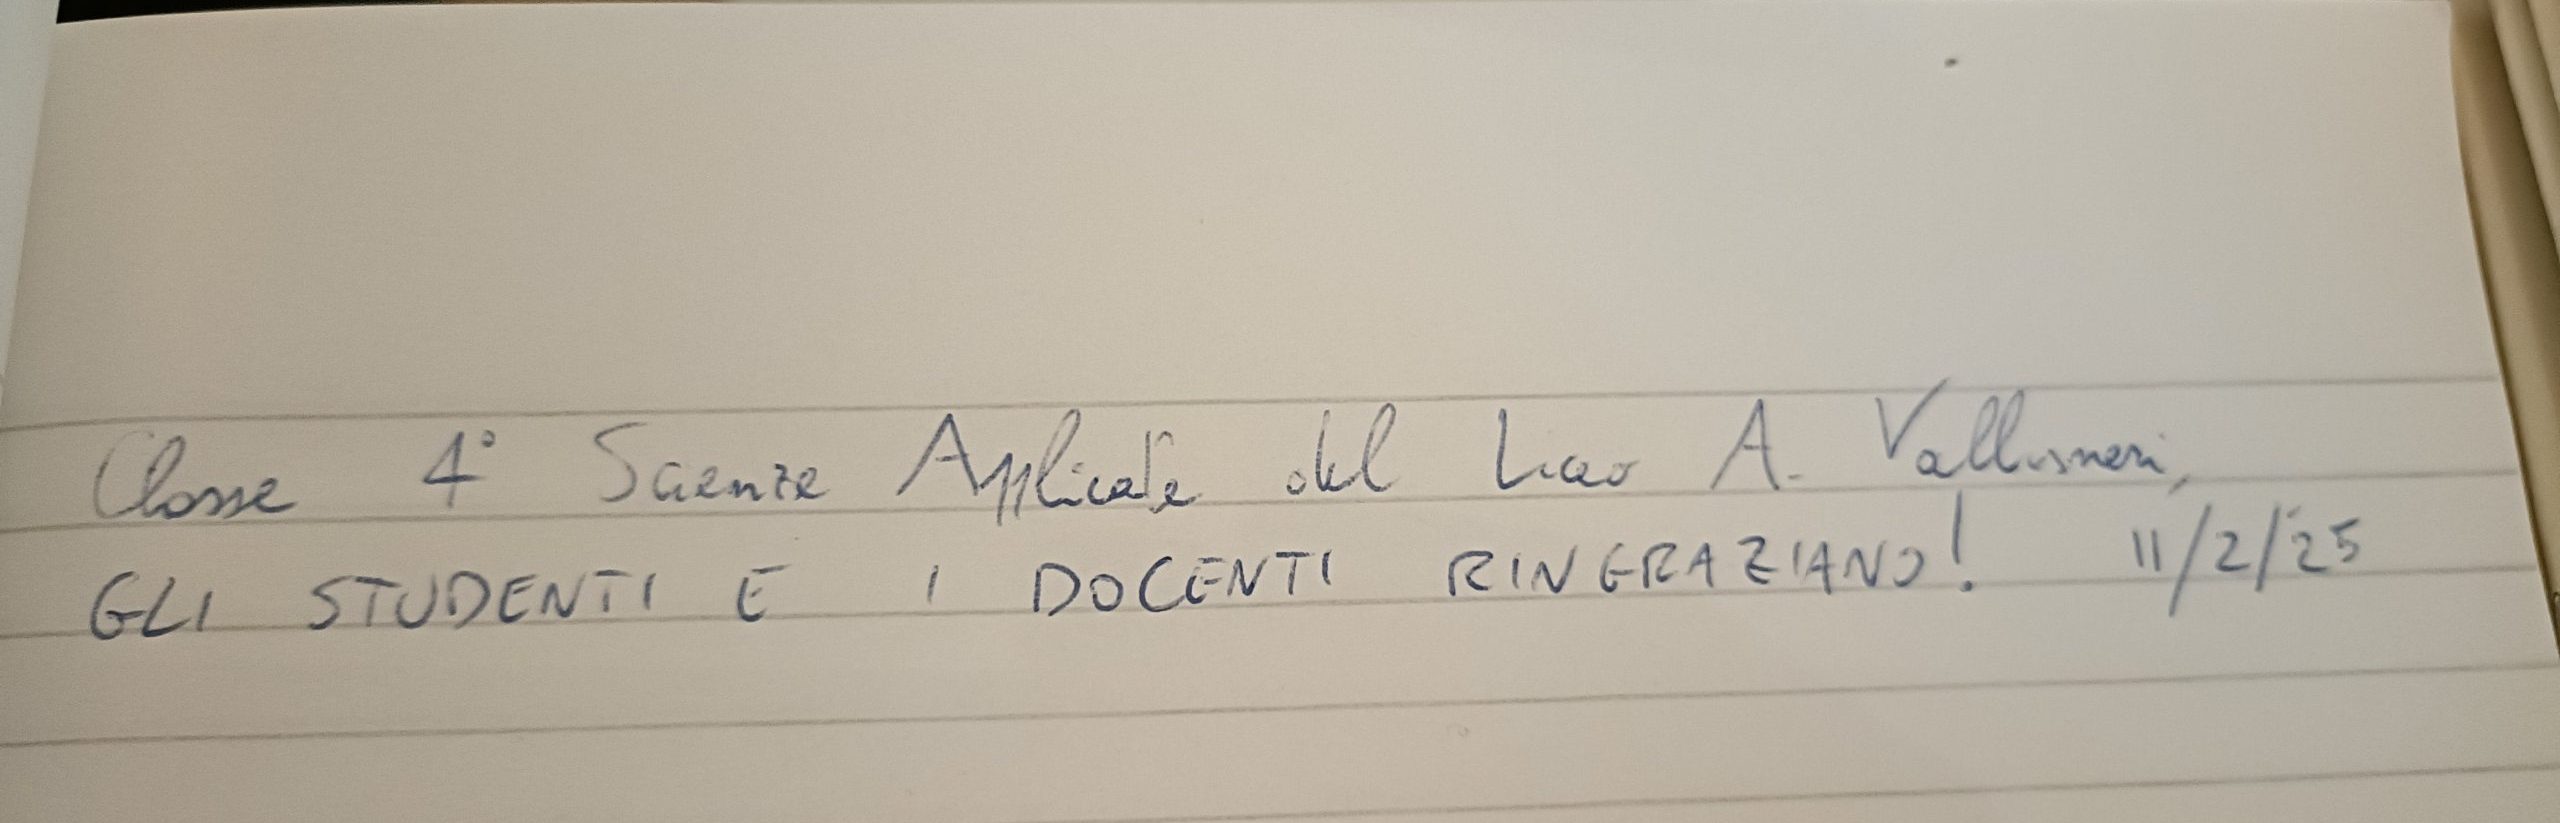 Classe 4° Scienze Applicate del Liceo A. Vallisneri,
GLI STUDENTI E I DOCENTI RINGRAZIANO! 11/2/25